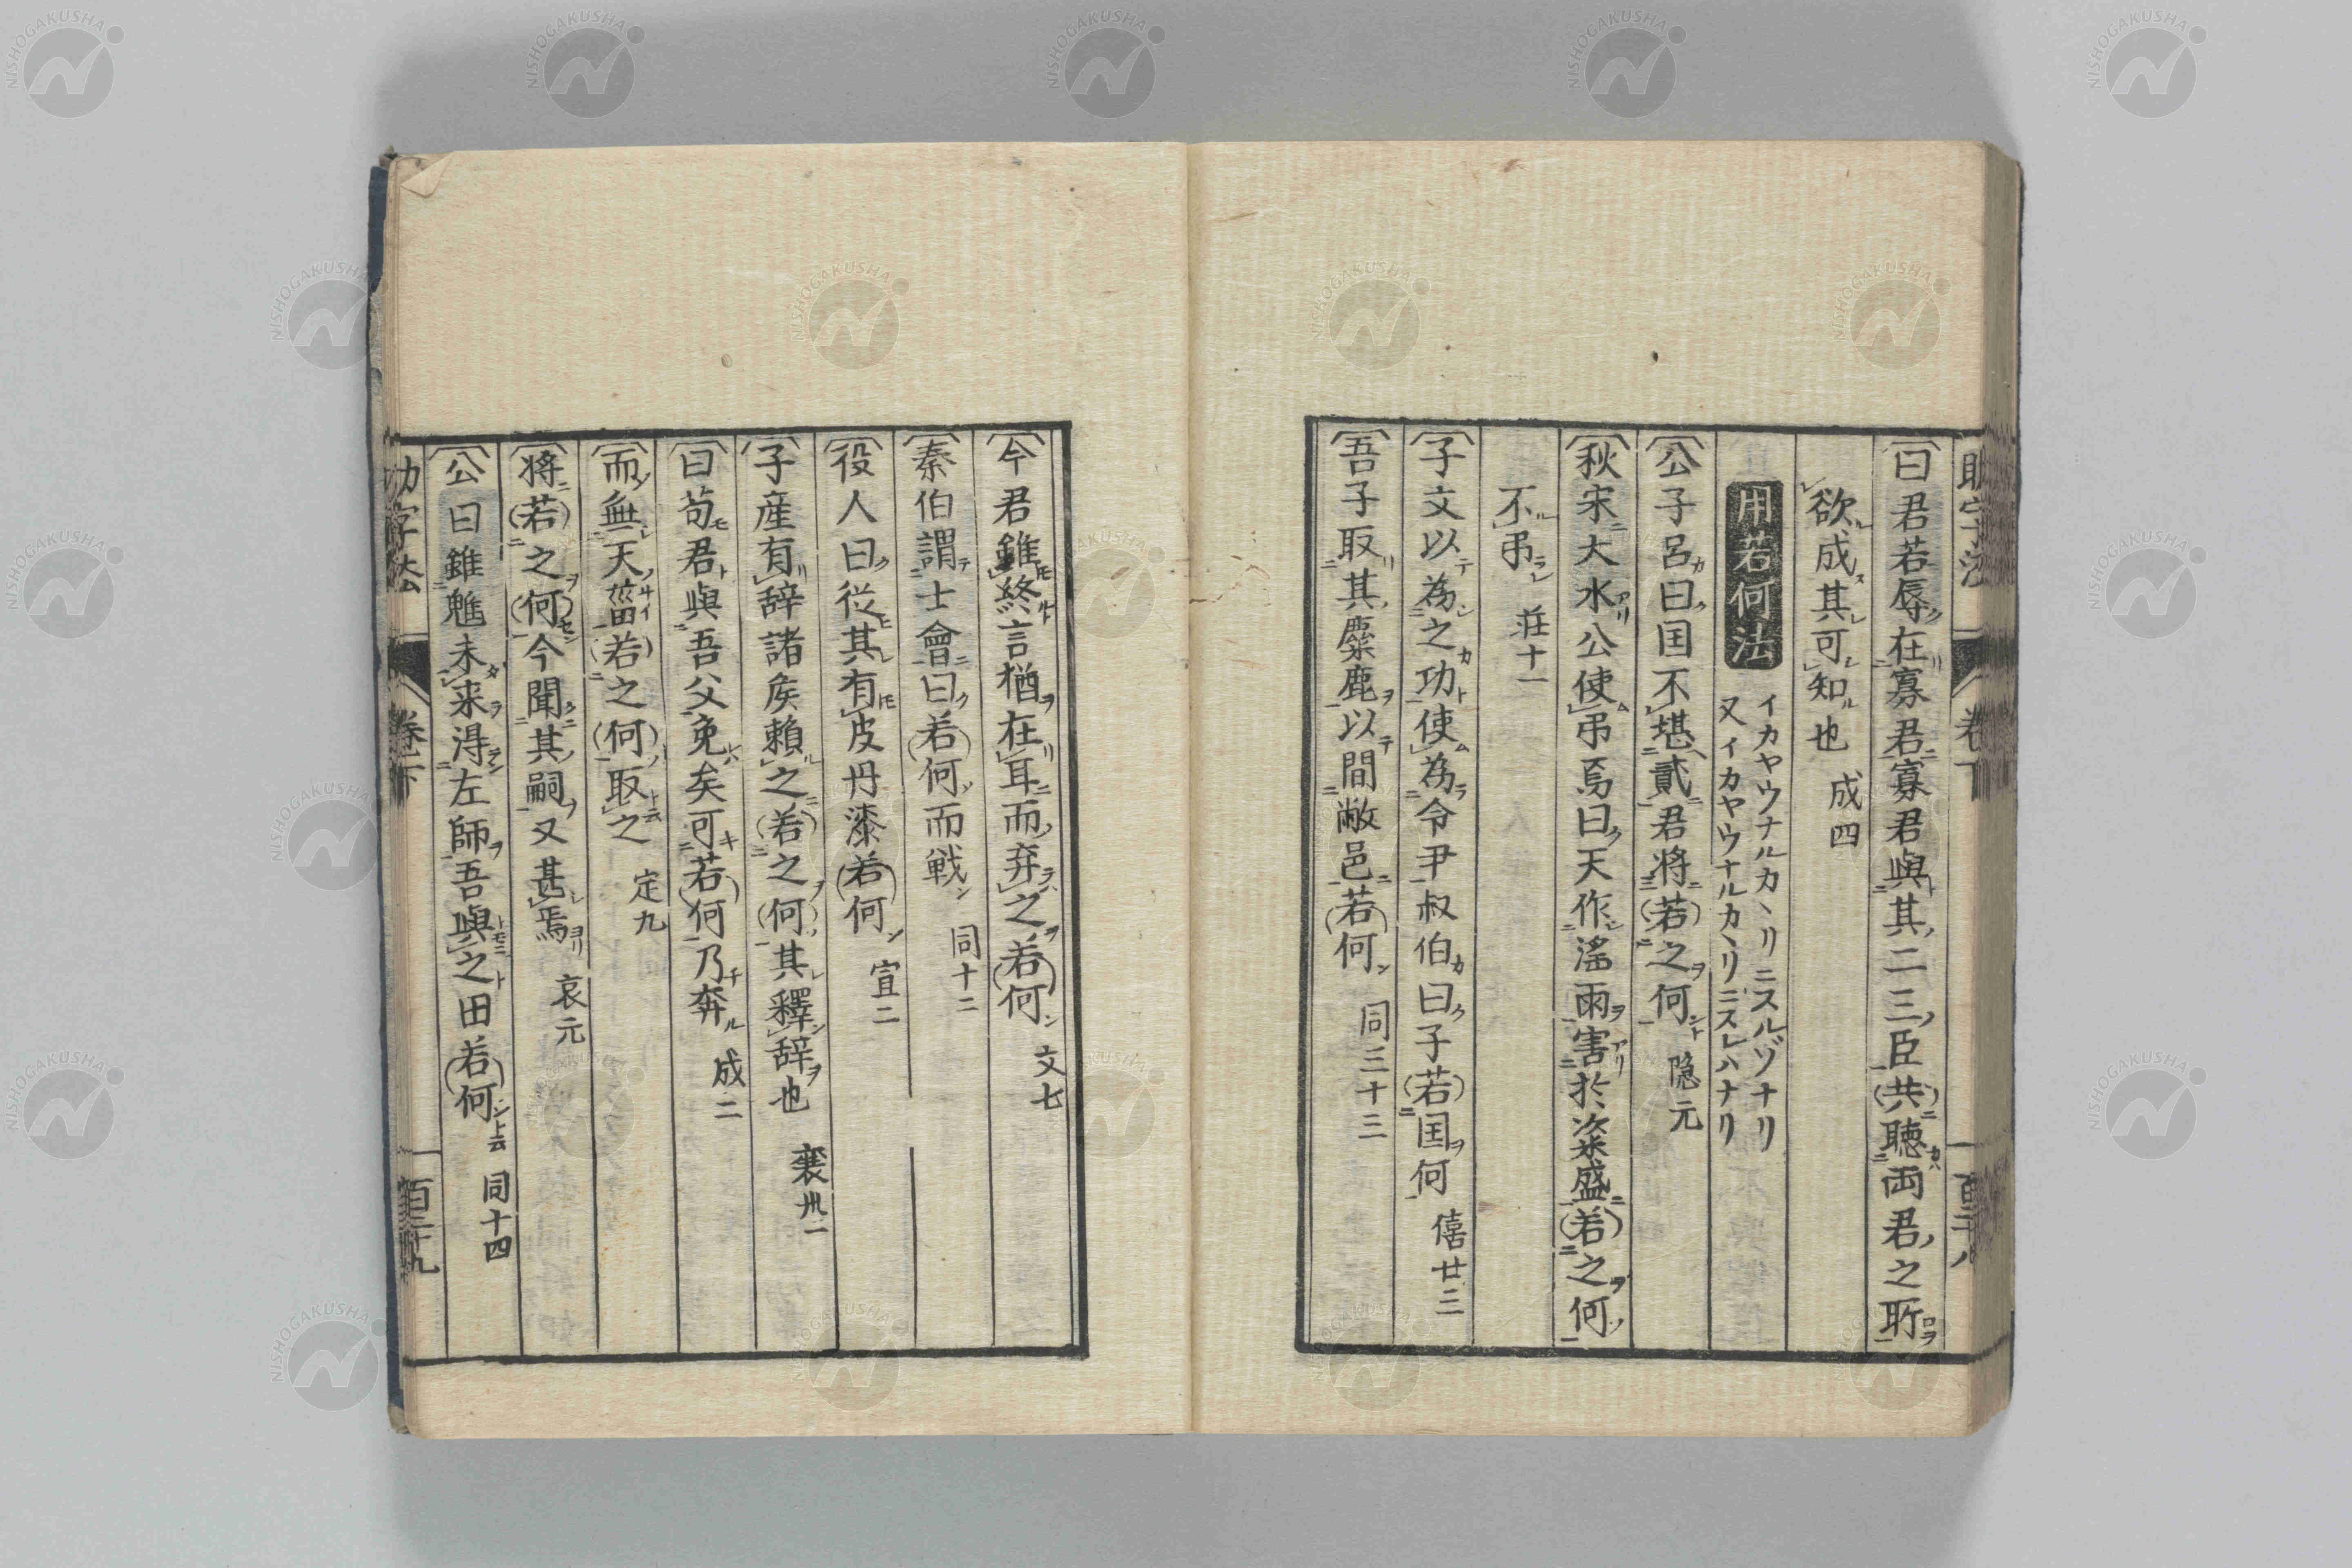 助字法 卷下 百三十八
曰君若辱在寡君寡君與其二三臣共聴両君之所
欲成其可知也 成四
用若何法 イカヤウナルカヽリニスルゾナリ
又イカヤウナルカヽリニスレハナリ
公子呂曰国不堪貳君将若之何 隠元
秋宋大水公使弔焉曰天作滛雨害於粢盛若之何
不弔 荘十一
子文以為之功使為令尹叔伯曰子若国何 僖廿三
吾子取其麋鹿以間敝邑若何 同三十三
今君雖終言猶在耳而弃之若何 文七
秦伯謂士會曰若何而戦 同十二
役人曰従其有皮丹漆若何 宣二
子産有辞諸矦頼之若之何其釋辞也 襄卅一
曰苟君與吾父免矣可若何乃奔 成二
而無天菑若之何取之 定九
将若之何今聞其嗣又甚焉 哀元
公曰雖魋未来得左師吾與之田若何 同十四
助字法 卷下 百三十九
NISHOGAKUSHA